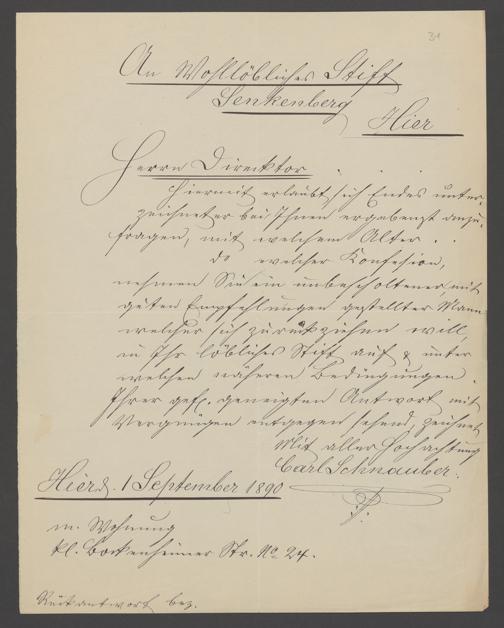 31
An Wohllöbliches Stift
Senkenberg
Hier
Herrn Direcktor
Hiermit erlaubt sich Endes unter-
zeichneter bei Ihnen ergebenst anzu-
fragen, mit welchem Alter . .
do welcher Konfesion,
nehmen Sie ein unbescholtener, mit
guten Empfehlungen gestellter Mann
welcher sich zurückziehen will,
in Ihr löbliches Stift auf & unter
welchen näheren Bedingungen.
Ihrer gefl. geneigten Antwort mit
Vergnügen entgegen sehend, zeichnet
Mit aller Hochachtung
Carl Schnauber.
Hier d. 1 September 1890
m. Wohnung
kl. Bockenheimer Str. No 24.
Rückantwort bez.